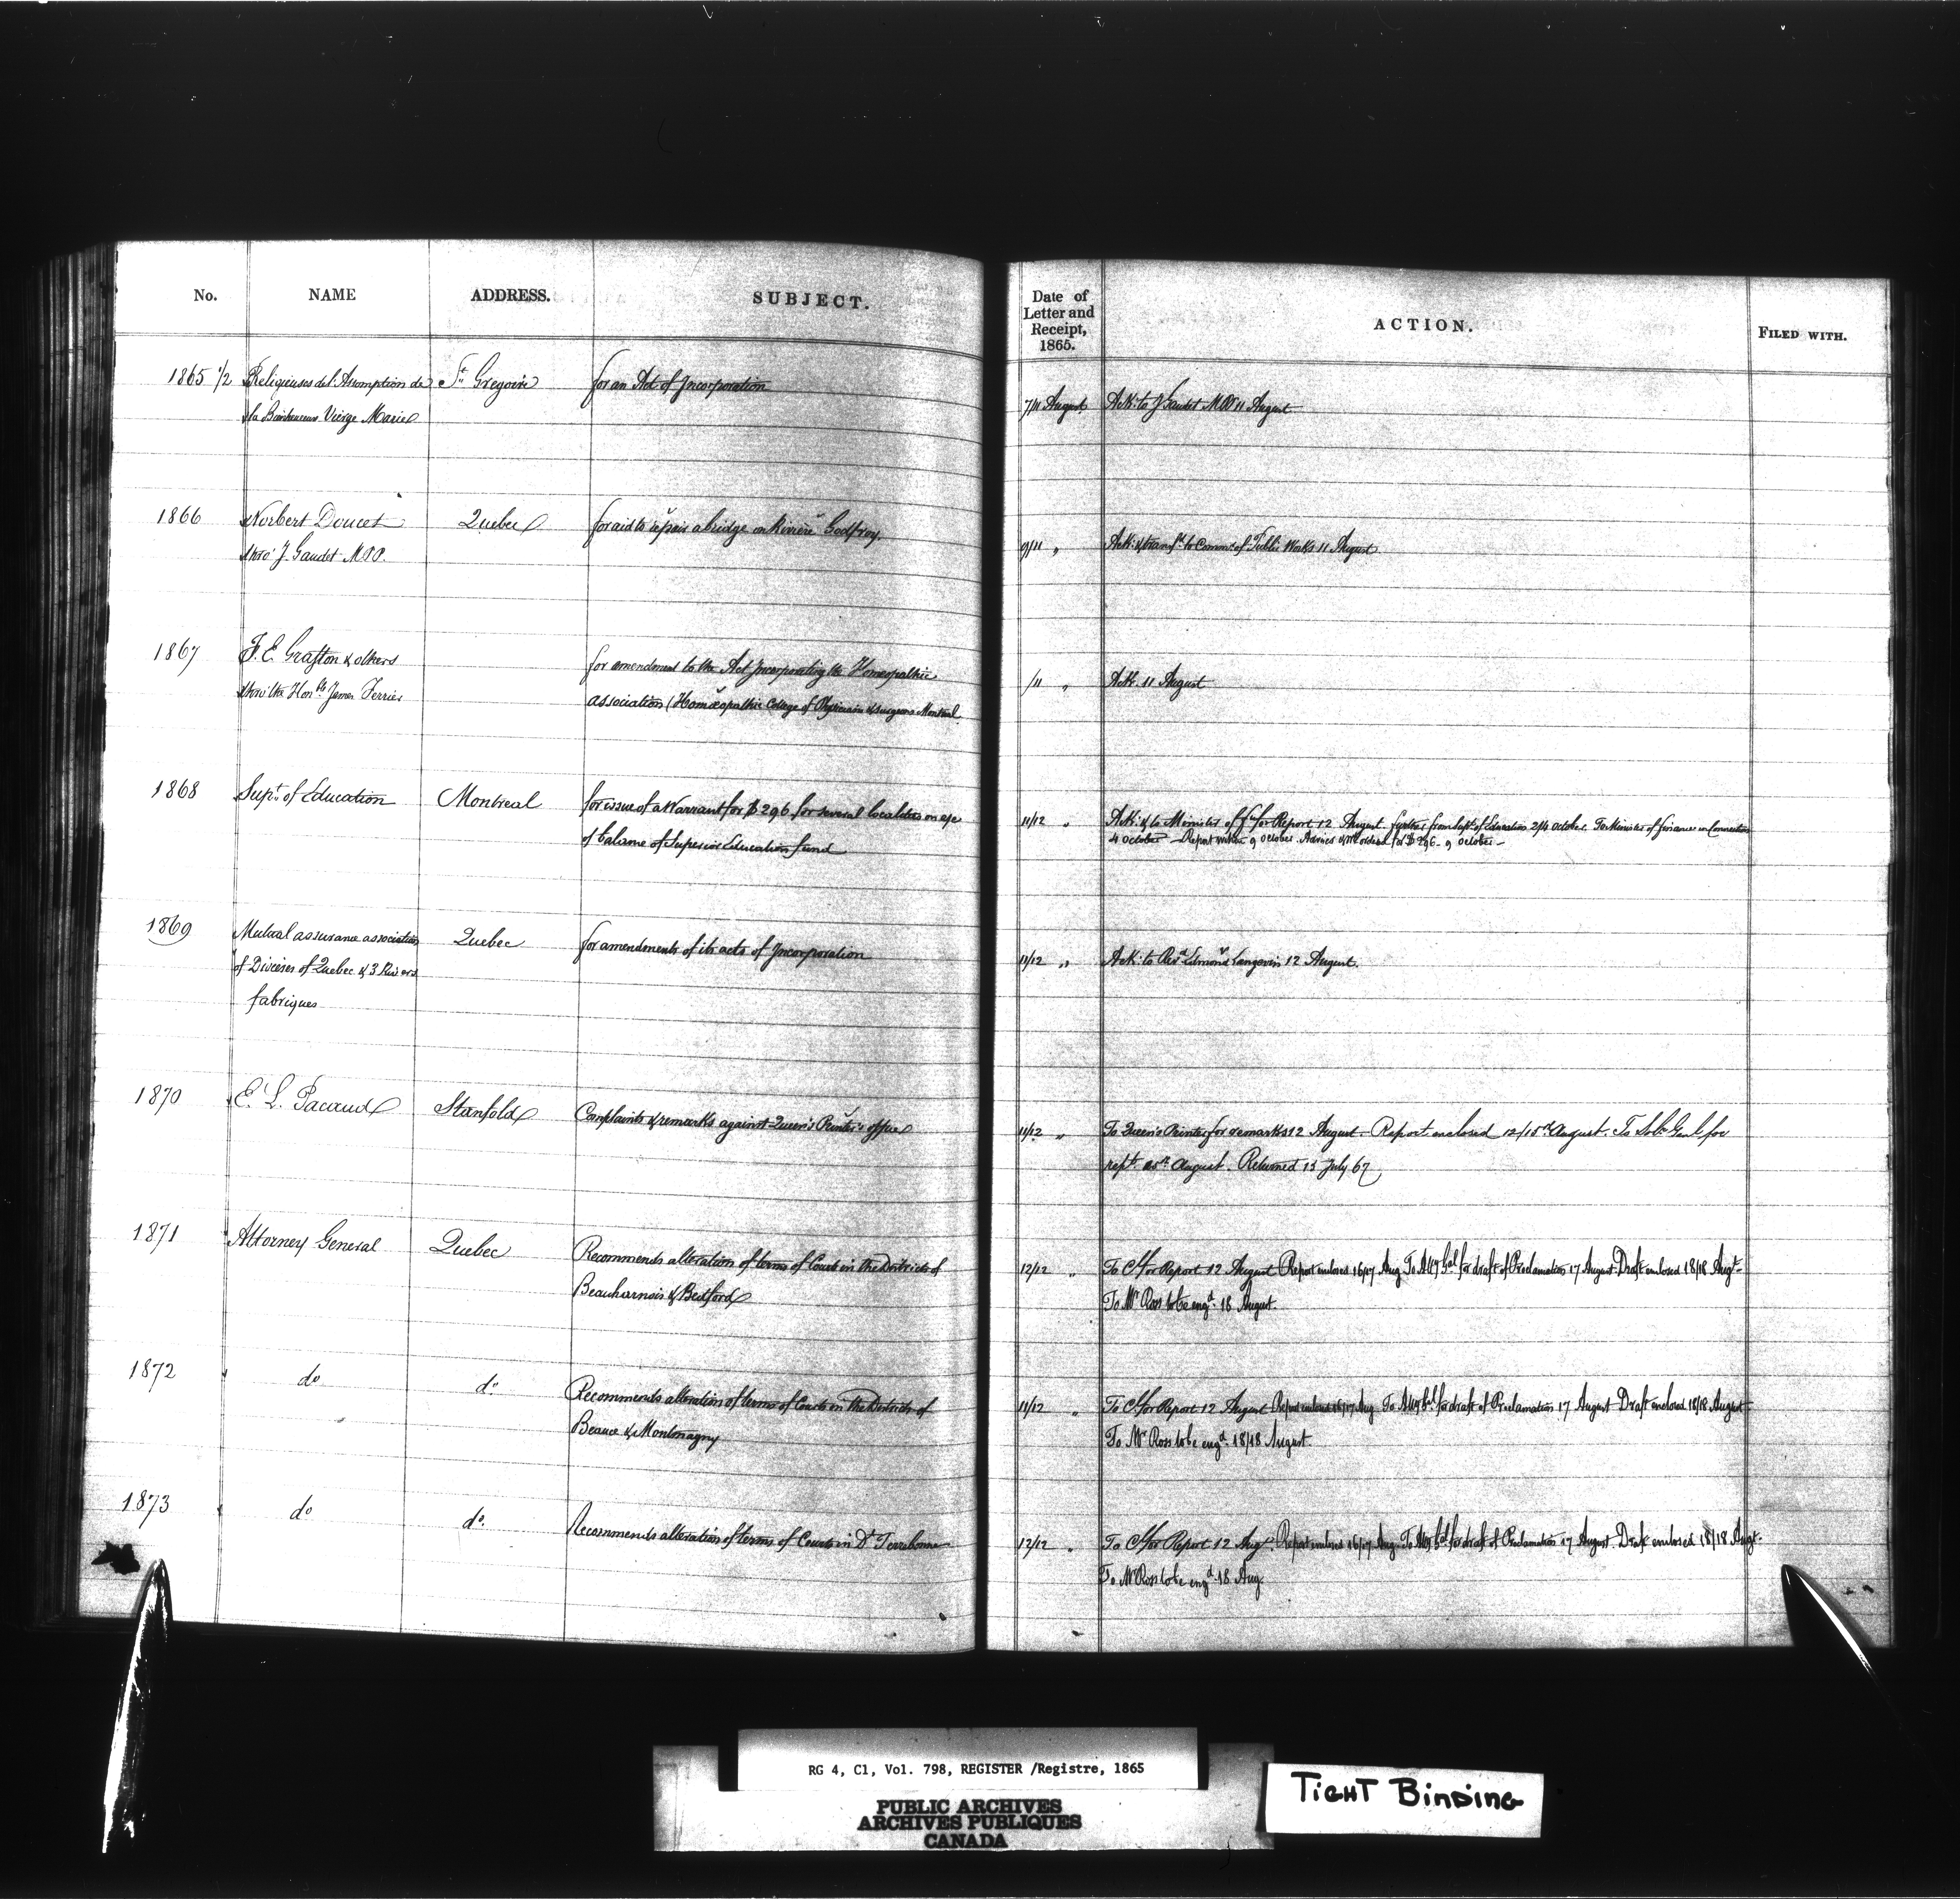 No. NAME ADDRESS. SUBJECT. Date of Letter and Receipt, 1865. ACTION. FILED WITH.
1865 1/2 Religieuses de l'Assomption de St Gregoire for an Act of Incorporation
la Bienheureuse Vierge Marie
7/11 August Ack: to J Gaudet MPP 11 August
1866 Norbert Doucet Quebec for aid to repair a bridge on Rivière Godfroy.
thro' J. Gaudet MPP.
9/11 " Ack: & transfd to Commr of Public Works 11 August
1867 F. E. Grafton & others for amendment to the Act Incorporating the Homeopathic
thro' the Honble James Ferrier Association (Homœopathic College of Physicians & surgeons Montreal
/11 " Ack. 11 August
1868 Supt of Education Montreal for issue of a Warrant for $296 for several localities on a/c
of balance of Superior Education fund
11/12 " Ack: & to Minister of f for Report 12 August. further from Supt of Education 2/4 October. To Minister of finance in Connection
4 October Report within 9 October. Advised & Mr ordered for $296 - 9 October -
1869 Mutual assurance association Quebec for amendments of its acts of Incorporation
of Dioceses of Quebec & 3 Rivers
fabriques
11/12 " Ack: to Revd Edmond Langevin 12 August.
1870 E. L. Pacaud Stanfold Complaints & remarks against Queen's Printer's office
11/12 " To Queen's Printer for remarks 12 August. Report enclosed 12/15th August. To Solr Genl for
rept August. Returned 15 July 67
1871 Attorney General Quebec Recommends alteration of terms of Courts in the Districts of
Beauharnois & Bedford
12/12 " To C for Report 12 August Report enclosed 16/17 Aug. To Atty Gnl for draft of Proclamation 17 August. Draft enclosed 18/18 Augt.
To Mr Ross to be engd. 18 August.
1872 do do Recommends alteration of terms of Courts in the Districts of
Beauce & Montmagny
11/12 " To C for Report 12 August Report enclosed 16/17 Aug To Atty Gnl for draft of Proclamation 17 August Draft enclosed 18/18 August
To Mr Ross to be engd. 18/18 August.
1873 do do. Recommends alteration of terms of Courts in Dt Terrebonne
12/12 " To C for Report 12 Augt. Report enclosed 16/17 Aug. To Atty Gnl for draft of Proclamation 17 August. Draft enclosed 18/18 Augt.
To Mr Ross to be engd. 18 Aug.
RG 4, C1, Vol. 798, REGISTER /Registre, 1865
PUBLIC ARCHIVES
ARCHIVES PUBLIQUES
CANADA
TIGHT BINDING